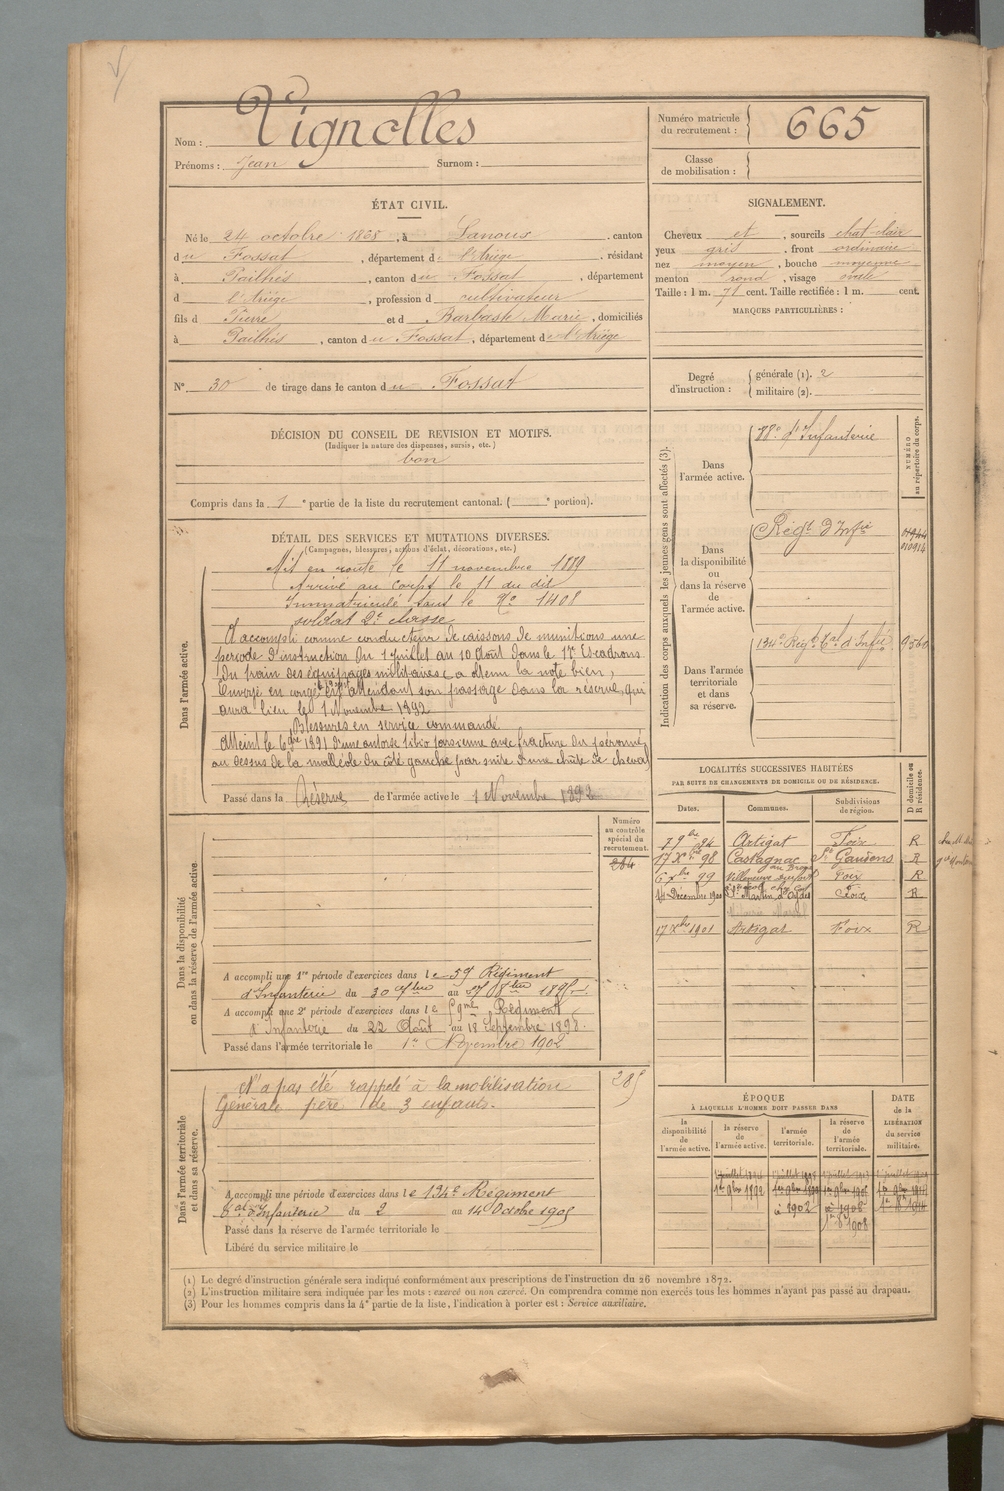 Nom : Vignolles
Prénoms : Jean Surnom :
Numéro matricule du recrutement : 665
Classe de mobilisation :
ÉTAT CIVIL.
Né le 24 octobre 1868, à Lanoux, canton
du Fossat, département de l'Ariège, résidant
à Pailhès, canton du Fossat, département
d l'Ariège, profession d cultivateur
fils d Pierre et d Barbaste Marie, domiciliés
à Pailhès, canton du Fossat, département de l'Ariège
N° 30 de tirage dans le canton du Fossat
SIGNALEMENT.
Cheveux et, sourcils chat-clair
yeux gris, front ordinaire
nez moyen, bouche moyenne
menton rond, visage ovale
Taille : 1 m. 71 cent. Taille rectifiée : 1 m. cent.
MARQUES PARTICULIÈRES :
Degré d'instruction : générale (1). 2
militaire (2).
DÉCISION DU CONSEIL DE REVISION ET MOTIFS.
(Indiquer la nature des dispenses, sursis, etc.)
bon
Compris dans la 1e partie de la liste du recrutement cantonal. ( e portion).
DÉTAIL DES SERVICES ET MUTATIONS DIVERSES.
(Campagnes, blessures, actions d'éclat, décorations, etc.)
Dans l'armée active.
Mis en route le 11 novembre 1889
Arrivé au corps le 11 du dit
Immatriculé sous le No 1408
soldat 2e classe
A accompli comme conducteur de caissons de munitions une
période d'instruction du 1 Juillet au 10 Août dans le 17e Escadrons
du train des équipages militaires (a obtenu la note bien,
Envoyé en congé en attendant son passage dans la réserve, qui
aura lieu le 1 Novembre 1892
Blessures en service commandé
Atteint le 6 9bre 1891 d'une entorse tibio tarsienne avec fracture du péronné
au dessus de la malléole du côté gauche par suite d'une chute de cheval
Passé dans la Réserve de l'armée active le 1 Novembre 1892
Indication des corps auxquels les jeunes gens sont affectés (3).
NUMÉRO au répertoire du corps.
Dans l'armée active. 88e d'Infanterie
Dans la disponibilité ou dans la réserve de l'armée active. Régt d'Infie
010914
Dans l'armée territoriale et dans sa réserve. 134e Régt Tal d'Infie 9560
LOCALITÉS SUCCESSIVES HABITÉES
PAR SUITE DE CHANGEMENTS DE DOMICILE OU DE RÉSIDENCE.
D domicile ou R résidence.
Dates. Communes. Subdivisions de région.
7 9bre 94 Artigat Foix R
17 Xbre 98 Castagnac St Gaudens R
6 Xbre 99 Villeneuve Foix R
14 Décembre 1900 St Martin d'Oydes Foix R
17 Xbre 1901 Artigat Foix R
Dans la disponibilité ou dans la réserve de l'armée active.
Numéro au contrôle spécial du recrutement.
284
A accompli une 1re période d'exercices dans le 59 Régiment
d'Infanterie du 30 7bre au 27 8bre 1895
A accompli une 2e période d'exercices dans le 59me Régiment
d'Infanterie du 22 Août au 18 Septembre 1898.
Passé dans l'armée territoriale le 1er Novembre 1902
Dans l'armée territoriale et dans sa réserve.
N'a pas été rappelé à la mobilisation 285
Générale père de 3 enfants.
A accompli une période d'exercices dans le 134e Régiment
Tal d'Infanterie du 2 au 14 Octobre 1905
Passé dans la réserve de l'armée territoriale le
Libéré du service militaire le
ÉPOQUE
À LAQUELLE L'HOMME DOIT PASSER DANS
DATE de la LIBÉRATION du service militaire.
la disponibilité de l'armée active.
la réserve de l'armée active.
l'armée territoriale.
la réserve de l'armée territoriale.
1er 9bre 1892
à 1902
1er 8 1908
(1) Le degré d'instruction générale sera indiqué conformément aux prescriptions de l'instruction du 26 novembre 1872.
(2) L'instruction militaire sera indiquée par les mots : exercé ou non exercé. On comprendra comme non exercés tous les hommes n'ayant pas passé au drapeau.
(3) Pour les hommes compris dans la 4e partie de la liste, l'indication à porter est : Service auxiliaire.